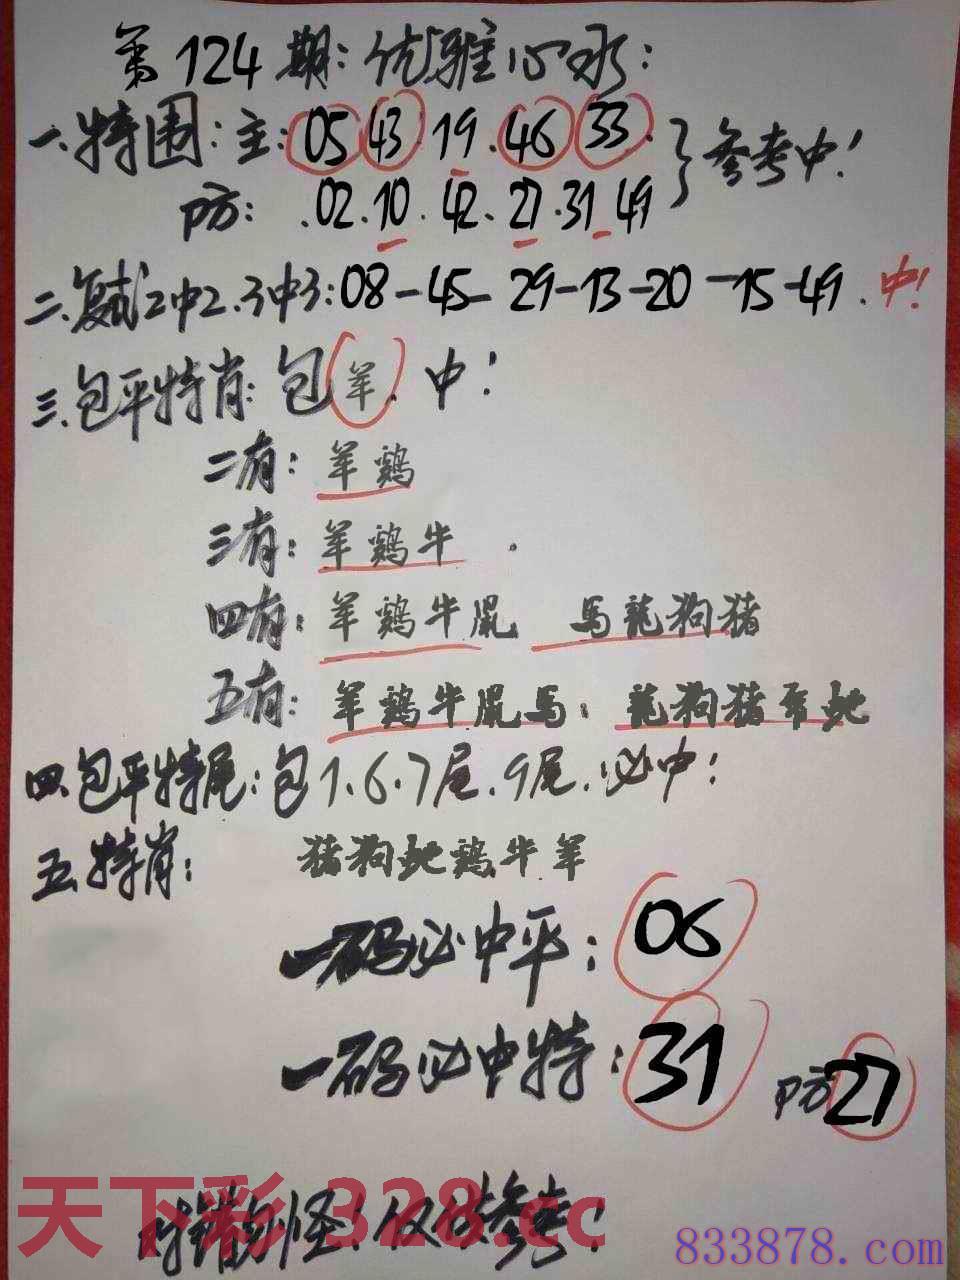 第124期:优雅心水:
一.特围:主:05 43.19.46 33. }参考中!
防: .02.10.42.27.31 49
二.复试2中2.3中3:08-45-29-13-20-15-49.中!
三.包平特肖:包羊.中!
二有:羊鸡
三有:羊鸡牛.
四有:羊鸡牛鼠 馬龍狗猪
五有:羊鸡牛鼠馬:龍狗猪兔蛇
四.包平特尾:包1.6.7尾.9尾.必中!
五.特肖: 猪狗蛇鸡牛羊
一码必中平:06
一码必中特:31 防27
天下彩 328.cc
对错勿怪!仅供参考!
833878.com